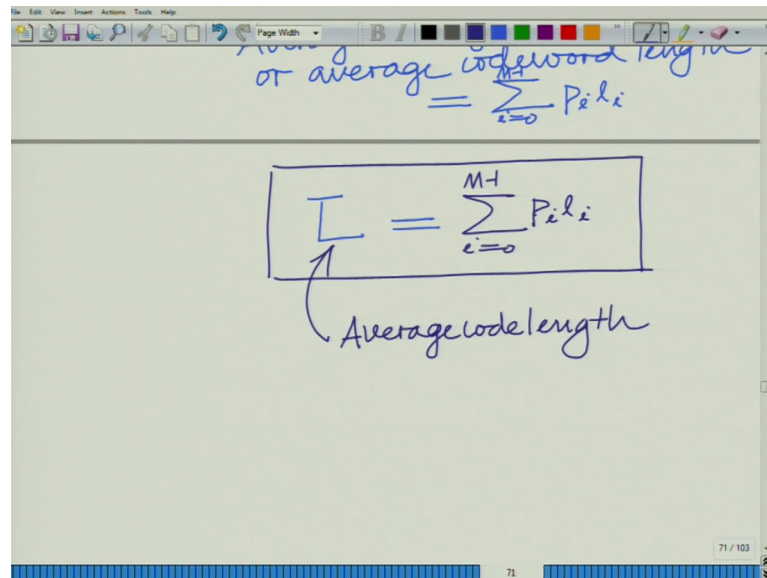 File Edit View Insert Actions Tools Help
Page Width B I
or average codeword length
= M-1 ∑ i=0 Pi li
L̄ = M-1 ∑ i=0 Pi li
Average code length
71 / 103
71